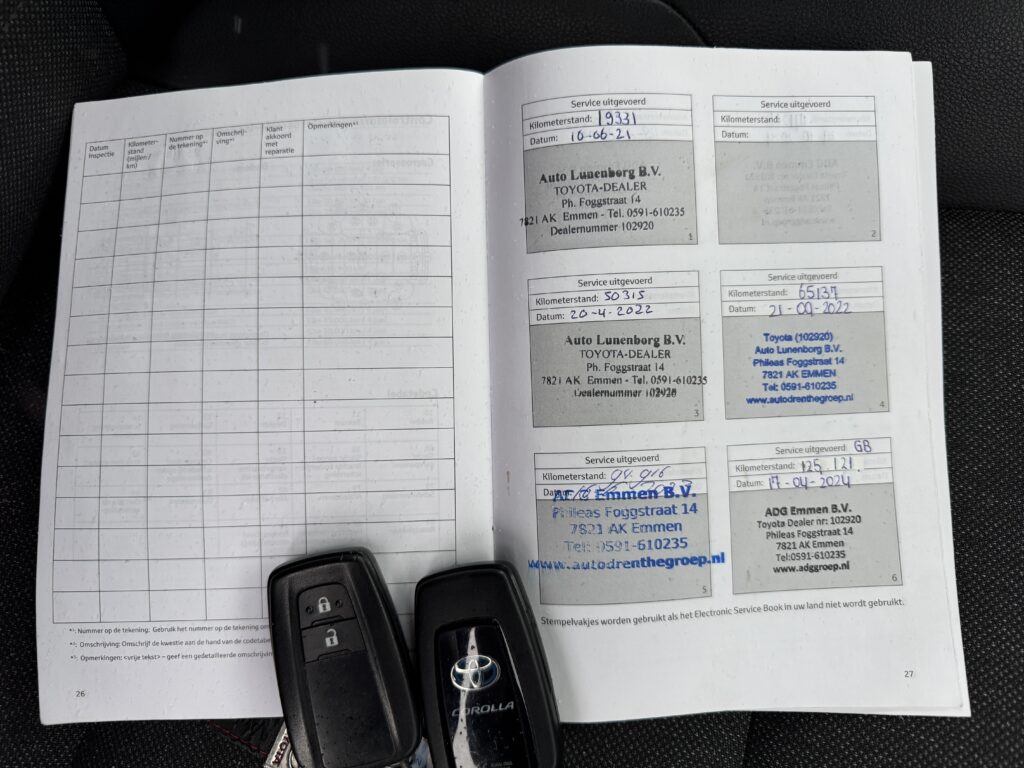 Datum Inspectie
Kilometer-stand (mijlen / km)
Nummer op de tekening*¹
Omschrij-ving*²
Klant akkoord met reparatie
Opmerkingen*³
*¹: Nummer op de tekening: Gebruik het nummer op de tekening
*²: Omschrijving: Omschrijf de kwestie aan de hand van de
*³: Opmerkingen: <vrije tekst> – geef een gedetailleerde
26
Service uitgevoerd
Kilometerstand: 19331
Datum: 10-06-21
Auto Lunenborg B.V.
TOYOTA-DEALER
Ph. Foggstraat 14
7821 AK Emmen - Tel. 0591-610235
Dealernummer 102920
1
Service uitgevoerd
Kilometerstand:
Datum:
2
Service uitgevoerd
Kilometerstand: 50315
Datum: 20-4-2022
Auto Lunenborg B.V.
TOYOTA-DEALER
Ph. Foggstraat 14
7821 AK Emmen - Tel. 0591-610235
Dealernummer 102920
3
Service uitgevoerd
Kilometerstand: 65137
Datum: 21-09-2022
Toyota (102920)
Auto Lunenborg B.V.
Phileas Foggstraat 14
7821 AK EMMEN
Tel: 0591-610235
www.autodrenthegroep.nl
4
Service uitgevoerd
Kilometerstand:
Emmen B.V.
Phileas Foggstraat 14
7821 AK Emmen
Tel: 0591-610235
www.autodrenthegroep.nl
5
Service uitgevoerd GB
Kilometerstand: 125.121
Datum: 17-04-2024
ADG Emmen B.V.
Toyota Dealer nr: 102920
Phileas Foggstraat 14
7821 AK Emmen
Tel:0591-610235
www.adggroep.nl
6
Stempelvakjes worden gebruikt als het Electronic Service Book in uw land niet wordt gebruikt.
27
COROLLA
TOYOTA